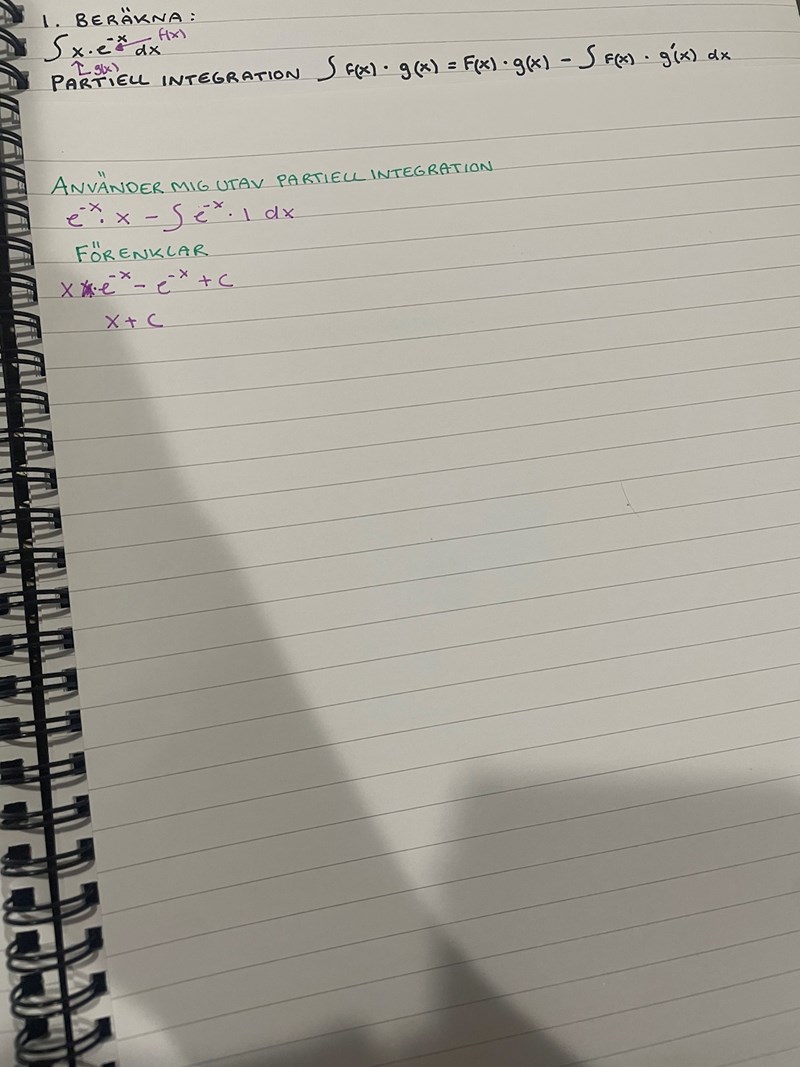 1. BERÄKNA:
∫ x·e^-x dx ← f(x)
↑ g(x)
PARTIELL INTEGRATION ∫ F(x) · g(x) = F(x) · g(x) - ∫ F(x) · g'(x) dx
ANVÄNDER MIG UTAV PARTIELL INTEGRATION
e^-x · x - ∫ e^-x · 1 dx
FÖRENKLAR
x · e^-x - e^-x + C
x + C